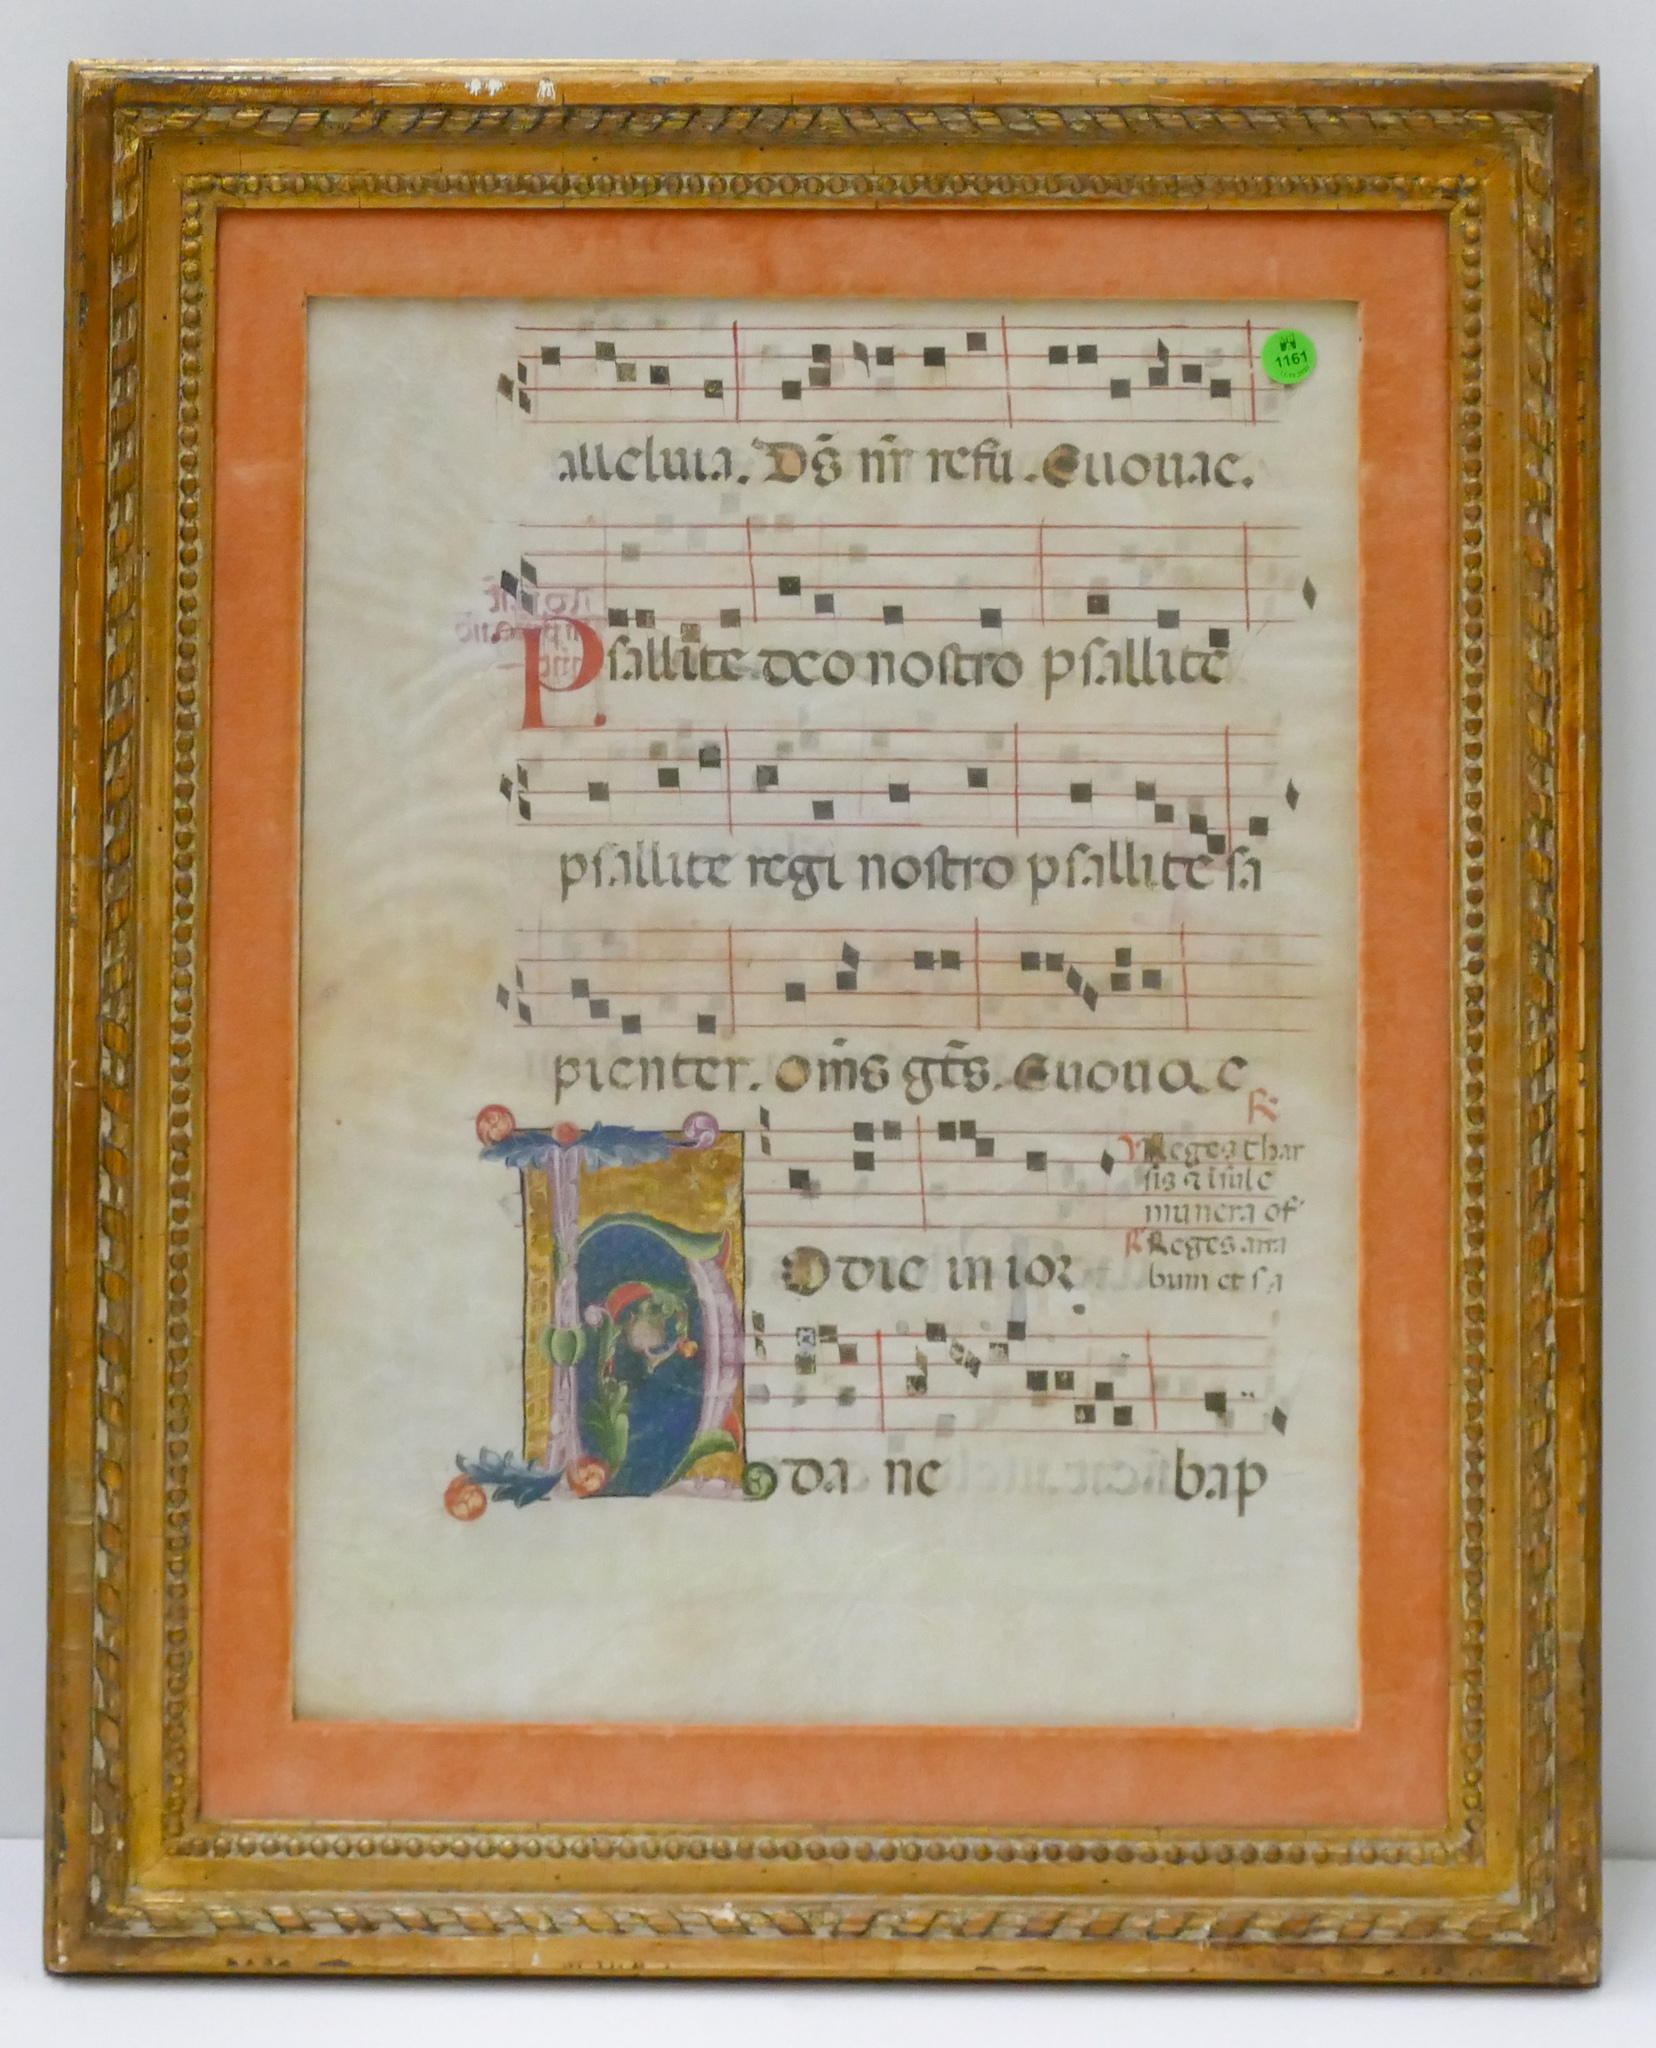 1161
alleluia. Dn̄s nr̄ refu. Euouae.
Psallite deo nostro psallite
psallite regi nostro psallite sa
pienter. Om̄s gt̄s. Euouae
R.
V Reges thar
sis & īsule
munera of
R. Reges ara
bum et sa
Hodie in ior
da ne bap